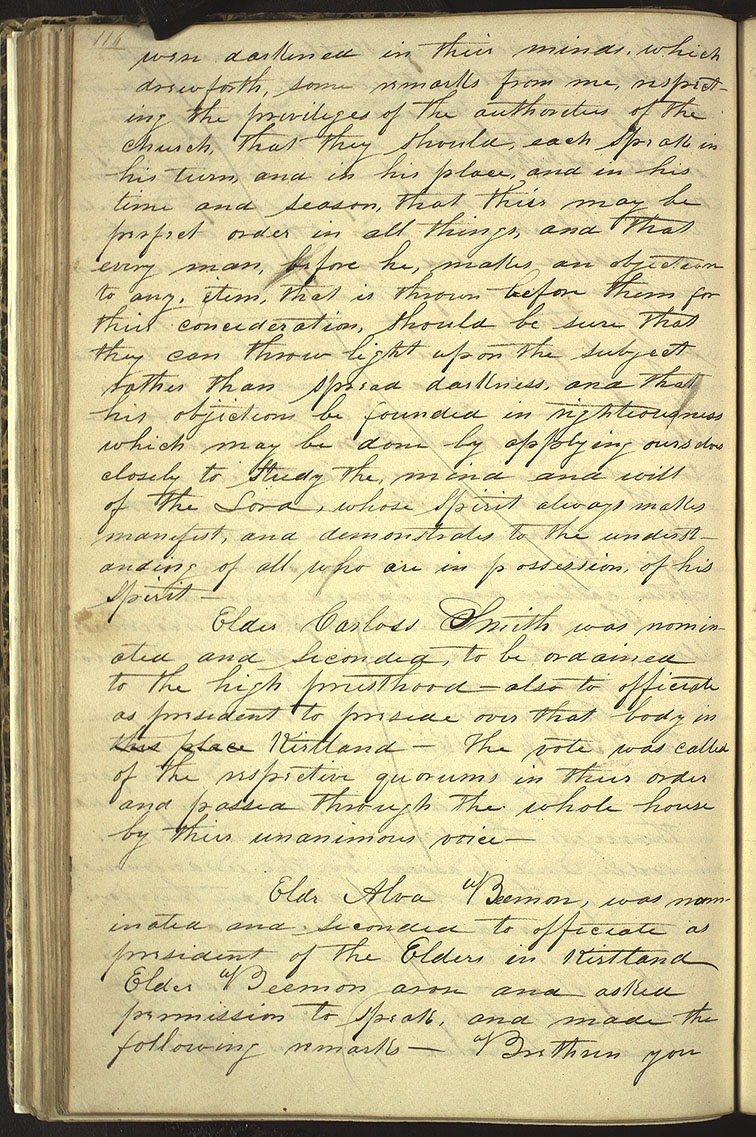 116
were darkened in their minds, which
drew forth, some remarks from me, respect-
ing the privileges of the authorities of the
church, that they should, each speak in
his turn, and in his place, and in his
time and season, that their may be
perfect order in all things, and that
every man, before he, makes an objection
to any, item, that is thrown before them for
their concideration, should be sure that
they can throw light upon the subject
rather than spread darkness, and that
his objections be founded in righteousness
which may be done by applying ourselves
closely to study the, mind and will
of the Lord, whose Spirit always makes
manifest, and demonstrates to the underst-
anding of all who are in possession, of his
Spirit—
Elder Carloss Smith was nomin-
ated and seconded, to be ordained
to the high priesthood—also to officiate
as president to preside over that body in
this place Kirtland— The vote was called
of the respective quorums in their order
and passed through the whole house
by their unanimous voice—
Eldr Alva Beemon, was nom-
inated and seconded to officiate as
president of the Elders in Kirtland
Elder Beemon arose and asked
permission to speak, and made the
following remarks— Brethren you